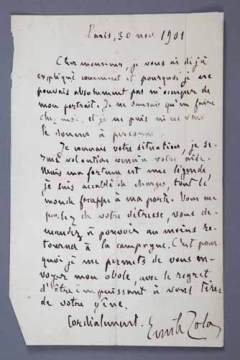 Paris, 30 nov. 1901
Cher monsieur, je vous ai déjà
expliqué comment et pourquoi je ne
pouvais absolument pas m'occuper de
mon portrait. Je ne saurais qu'en faire
chez moi, et je ne puis ni ne veux
le donner à personne.
Je connais votre situation, je se-
rais volontiers venu à votre aide.
Mais ma fortune est une légende,
je suis accablé de charges, tout le
monde frappe à ma porte. Vous me
parlez de votre détresse, vous de-
mandez à pouvoir au moins re-
tourner à la campagne. C'est pour-
quoi je me permets de vous en-
voyer mon obole, avec le regret
d'être impuissant à vous tirer
de votre gêne.
Cordialement. Emile Zola